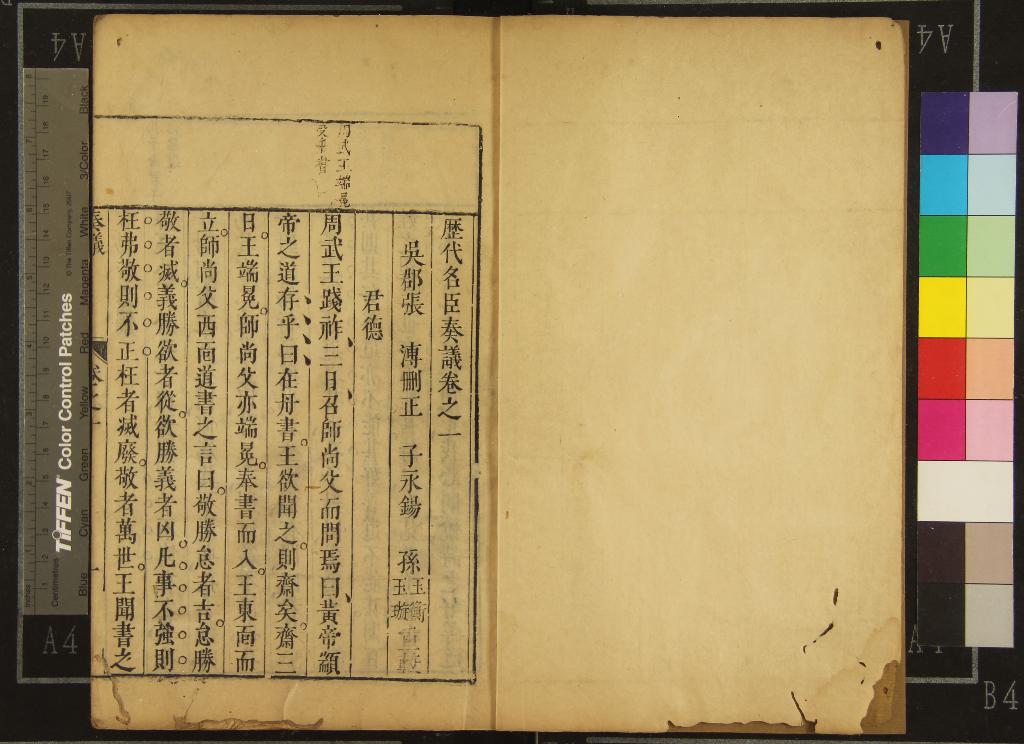 歷代名臣奏議卷之一
吳郡張溥刪正 子永錫 孫玉衡玉璇
君德
周武王踐祚三日召師尚父而問焉曰黃帝顓
帝之道存乎曰在丹書王欲聞之則齋矣齋三
日王端冕師尚父亦端冕奉書而入王東面而
立師尚父西面道書之言曰敬勝怠者吉怠勝
敬者滅義勝欲者從欲勝義者凶凡事不強則
枉弗敬則不正枉者滅廢敬者萬世王聞書之
周武王端冕
受丹書
奏議
卷之一
一
A4
A4
A4
A4
B4
Inches
Centimetres
© The Tiffen Company, 2007
TIFFEN Color Control Patches
Blue Cyan Green Yellow Red Magenta White 3/Color Black